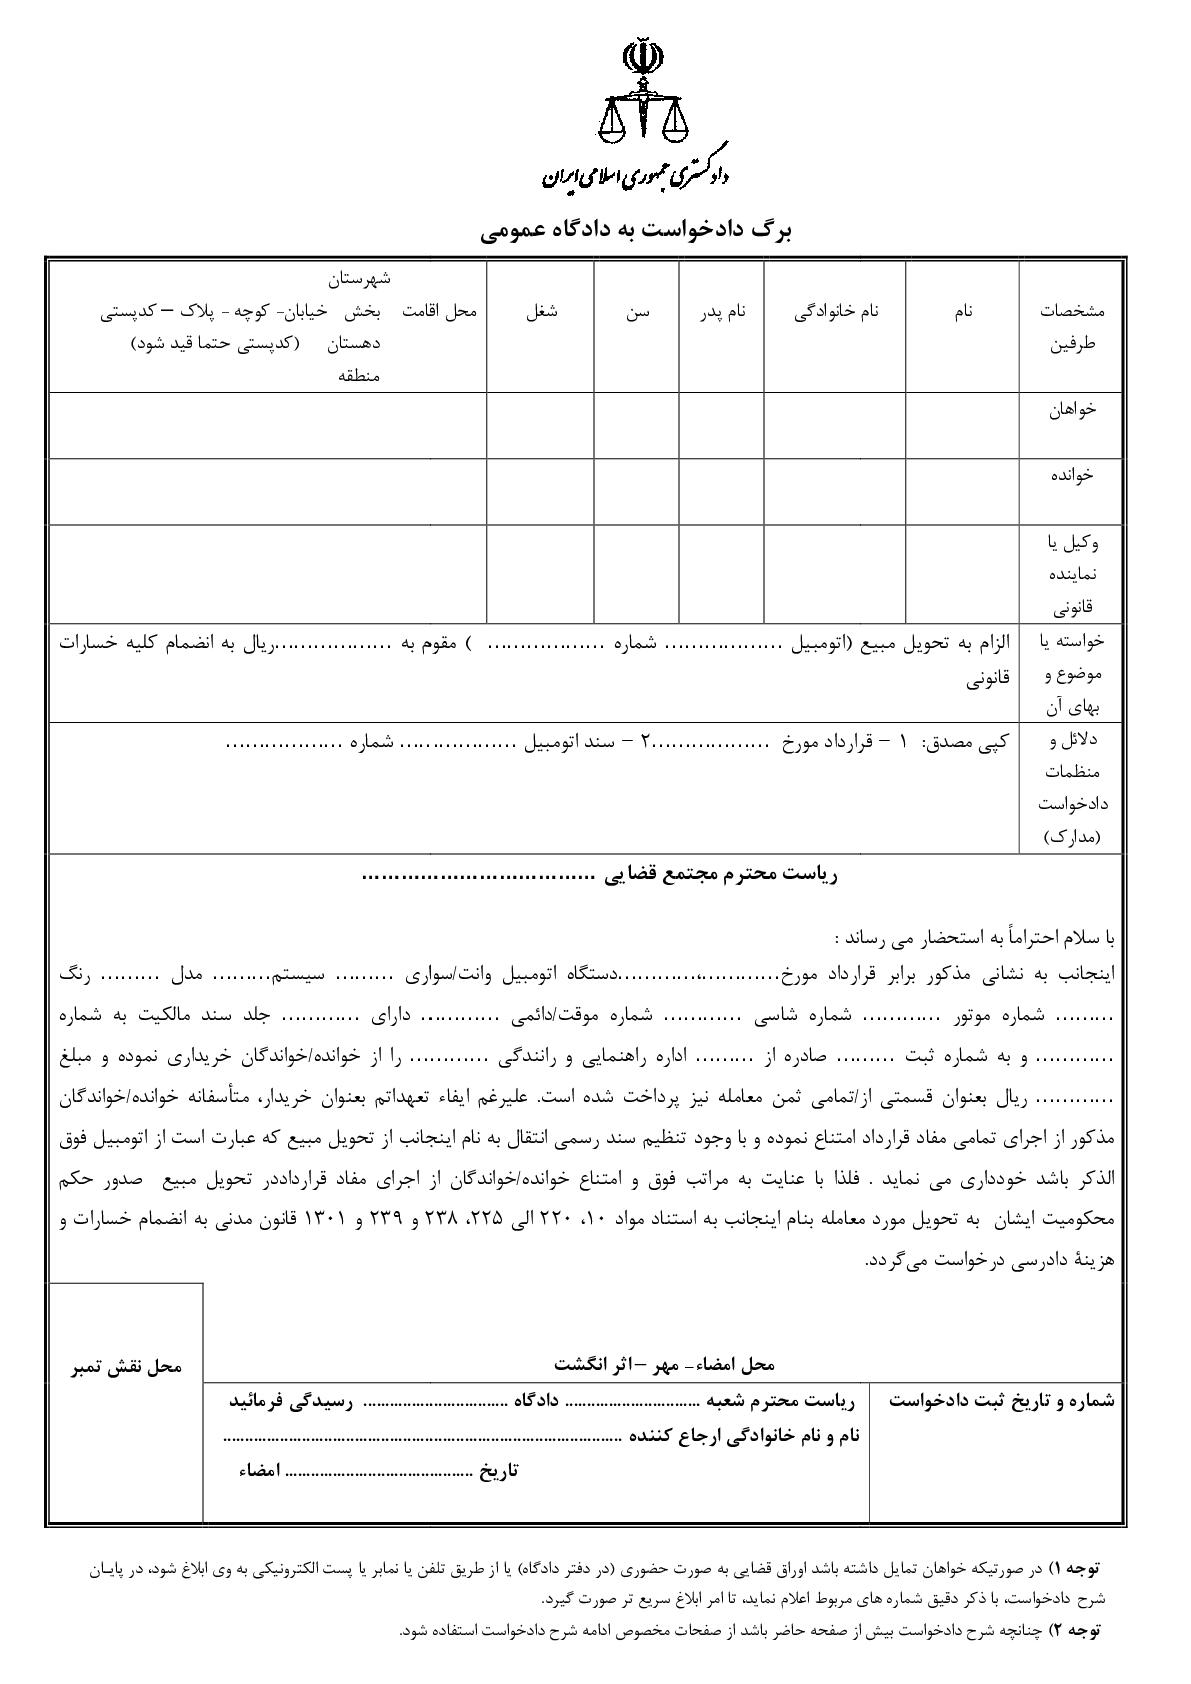 دادگستری جمهوری اسلامی ایران
برگ دادخواست به دادگاه عمومی
مشخصات طرفین
نام
نام خانوادگی
نام پدر
سن
شغل
محل اقامت
شهرستان
بخش خیابان- کوچه - پلاک – کدپستی
دهستان (کدپستی حتما قید شود)
منطقه
خواهان
خوانده
وکیل یا
نماینده
قانونی
خواسته یا
موضوع و
بهای آن
الزام به تحویل مبیع (اتومبیل .................. شماره .................. ) مقوم به ..................ریال به انضمام کلیه خسارات
قانونی
دلائل و
منظمات
دادخواست
(مدارک)
کپی مصدق: ۱ – قرارداد مورخ ..................۲ – سند اتومبیل .................. شماره ..................
ریاست محترم مجتمع قضایی ....................................
با سلام احتراماً به استحضار می رساند :
اینجانب به نشانی مذکور برابر قرارداد مورخ............،............دستگاه اتومبیل وانت/سواری ......... سیستم......... مدل ......... رنگ
......... شماره موتور ............ شماره شاسی ............ شماره موقت/دائمی ............ دارای ............ جلد سند مالکیت به شماره
............ و به شماره ثبت ......... صادره از ......... اداره راهنمایی و رانندگی ............ را از خوانده/خواندگان خریداری نموده و مبلغ
............ ریال بعنوان قسمتی از/تمامی ثمن معامله نیز پرداخت شده است. علیرغم ایفاء تعهداتم بعنوان خریدار، متأسفانه خوانده/خواندگان
مذکور از اجرای تمامی مفاد قرارداد امتناع نموده و با وجود تنظیم سند رسمی انتقال به نام اینجانب از تحویل مبیع که عبارت است از اتومبیل فوق
الذکر باشد خودداری می نماید . فلذا با عنایت به مراتب فوق و امتناع خوانده/خواندگان از اجرای مفاد قرارداددر تحویل مبیع صدور حکم
محکومیت ایشان به تحویل مورد معامله بنام اینجانب به استناد مواد ۱۰، ۲۲۰ الی ۲۲۵، ۲۳۸ و ۲۳۹ و ۱۳۰۱ قانون مدنی به انضمام خسارات و
هزینۀ دادرسی درخواست می‌گردد.
محل نقش تمبر
محل امضاء- مهر –اثر انگشت
شماره و تاریخ ثبت دادخواست
ریاست محترم شعبه ............................... دادگاه ................................. رسیدگی فرمائید
نام و نام خانوادگی ارجاع کننده ............................................................................................
تاریخ ........................................... امضاء
توجه ۱) در صورتیکه خواهان تمایل داشته باشد اوراق قضایی به صورت حضوری (در دفتر دادگاه) یا از طریق تلفن یا نمابر یا پست الکترونیکی به وی ابلاغ شود، در پایـان
شرح دادخواست، با ذکر دقیق شماره های مربوط اعلام نماید، تا امر ابلاغ سریع تر صورت گیرد.
توجه ۲) چنانچه شرح دادخواست بیش از صفحه حاضر باشد از صفحات مخصوص ادامه شرح دادخواست استفاده شود.